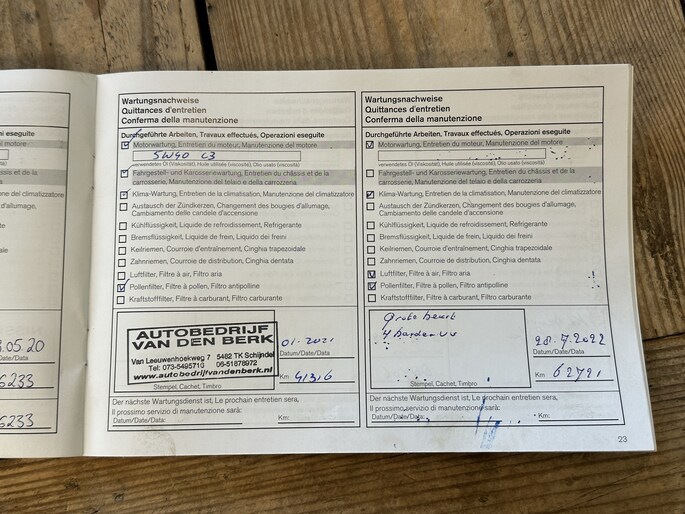 ni eseguite
del motore
s et de la
ria
imatizzatore
d'allumage,
rante
ni
oidale
ntata
line
rante
.05.20
Date/Data
6233
6233
Wartungsnachweise
Quittances d'entretien
Conferma della manutenzione
Durchgeführte Arbeiten, Travaux effectués, Operazioni eseguite
Motorwartung, Entretien du moteur, Manutenzione del motore
5W40 C3
verwendetes Öl (Viskosität), Huile utilisée (viscosité), Olio usato (viscosità)
Fahrgestell- und Karosseriewartung, Entretien du châssis et de la
carrosserie, Manutenzione del telaio e della carrozzeria
Klima-Wartung, Entretien de la climatisation, Manutenzione del climatizzatore
Austausch der Zündkerzen, Changement des bougies d'allumage,
Cambiamento delle candele d'accensione
Kühlflüssigkeit, Liquide de refroidissement, Refrigerante
Bremsflüssigkeit, Liquide de frein, Liquido dei freini
Keilriemen, Courroie d'entraînement, Cinghia trapezoidale
Zahnriemen, Courroie de distribution, Cinghia dentata
Luftfilter, Filtre à air, Filtro aria
Pollenfilter, Filtre à pollen, Filtro antipolline
Kraftstofffilter, Filtre à carburant, Filtro carburante
AUTOBEDRIJF
VAN DEN BERK
Van Leeuwenhoekweg 7 5482 TK Schijndel
Tel: 073-5495710 06-51878972
www.autobedrijfvandenberk.nl
Stempel, Cachet, Timbro
01-2021
Datum/Date/Data
Km: 41316
Der nächste Wartungsdienst ist, Le prochain entretien sera,
Il prossimo servizio di manutenzione sarà:
Datum/Date/Data:
Km:
Wartungsnachweise
Quittances d'entretien
Conferma della manutenzione
Durchgeführte Arbeiten, Travaux effectués, Operazioni eseguite
Motorwartung, Entretien du moteur, Manutenzione del motore
verwendetes Öl (Viskosität), Huile utilisée (viscosité), Olio usato (viscosità)
Fahrgestell- und Karosseriewartung, Entretien du châssis et de la
carrosserie, Manutenzione del telaio e della carrozzeria
Klima-Wartung, Entretien de la climatisation, Manutenzione del climatizzatore
Austausch der Zündkerzen, Changement des bougies d'allumage,
Cambiamento delle candele d'accensione
Kühlflüssigkeit, Liquide de refroidissement, Refrigerante
Bremsflüssigkeit, Liquide de frein, Liquido dei freini
Keilriemen, Courroie d'entraînement, Cinghia trapezoidale
Zahnriemen, Courroie de distribution, Cinghia dentata
Luftfilter, Filtre à air, Filtro aria
Pollenfilter, Filtre à pollen, Filtro antipolline
Kraftstofffilter, Filtre à carburant, Filtro carburante
grote beurt
4 banden
Stempel, Cachet, Timbro
28.7.2022
Datum/Date/Data
Km 62721
Der nächste Wartungsdienst ist, Le prochain entretien sera,
Il prossimo servizio di manutenzione sarà:
Datum/Date/Data:
Km:
23